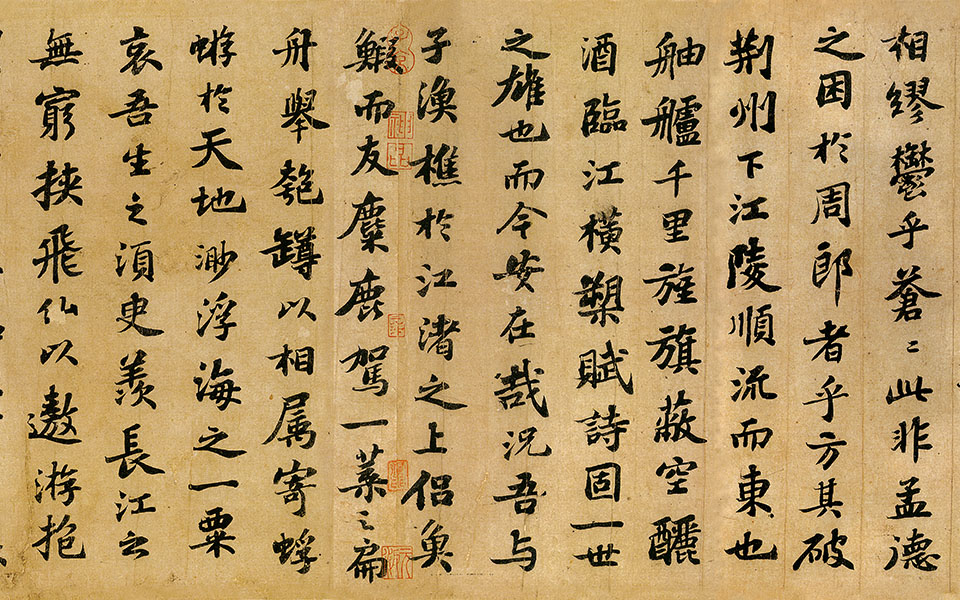 相繆鬱乎蒼〻此非孟德
之困於周郎者乎方其破
荊州下江陵順流而東也
舳艫千里旌旗蔽空釃
酒臨江橫槊賦詩固一世
之雄也而今安在哉況吾與
子漁樵於江渚之上侶魚
鰕而友麋鹿駕一葉之扁
舟舉匏罇以相属寄蜉
蝣於天地渺浮海之一粟
哀吾生之須臾羨長江之
無窮挾飛仙以遨游抱